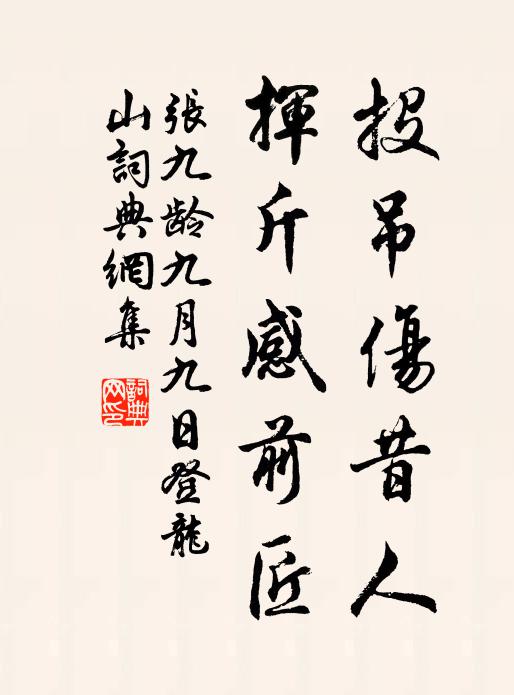 投吊傷昔人
揮斤感前匠
張九龄九月九日登龍
山詞典網集
詞典
网印